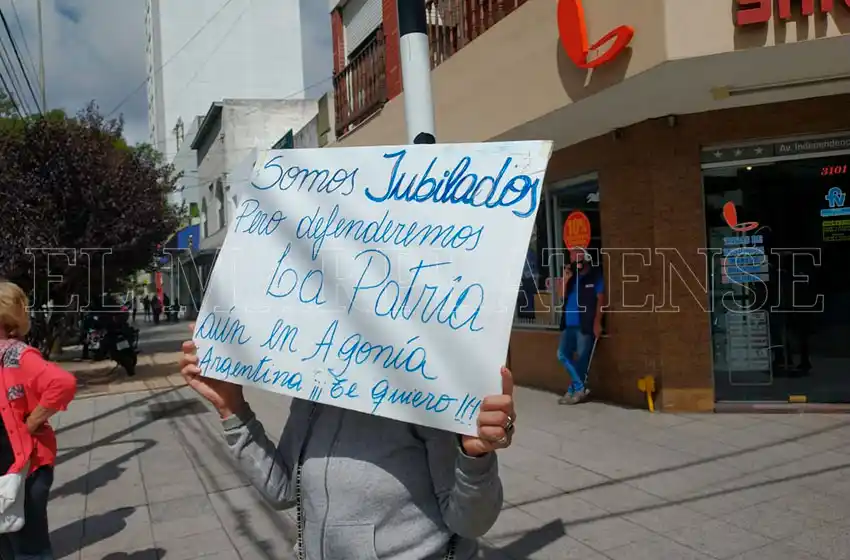 Somos Jubilados
Pero defenderemos
La Patria
aún en Agonía
Argentina ¡¡¡ Te quiero !!!
EL MARPLATENSE
10%
Av. Independencia
3101